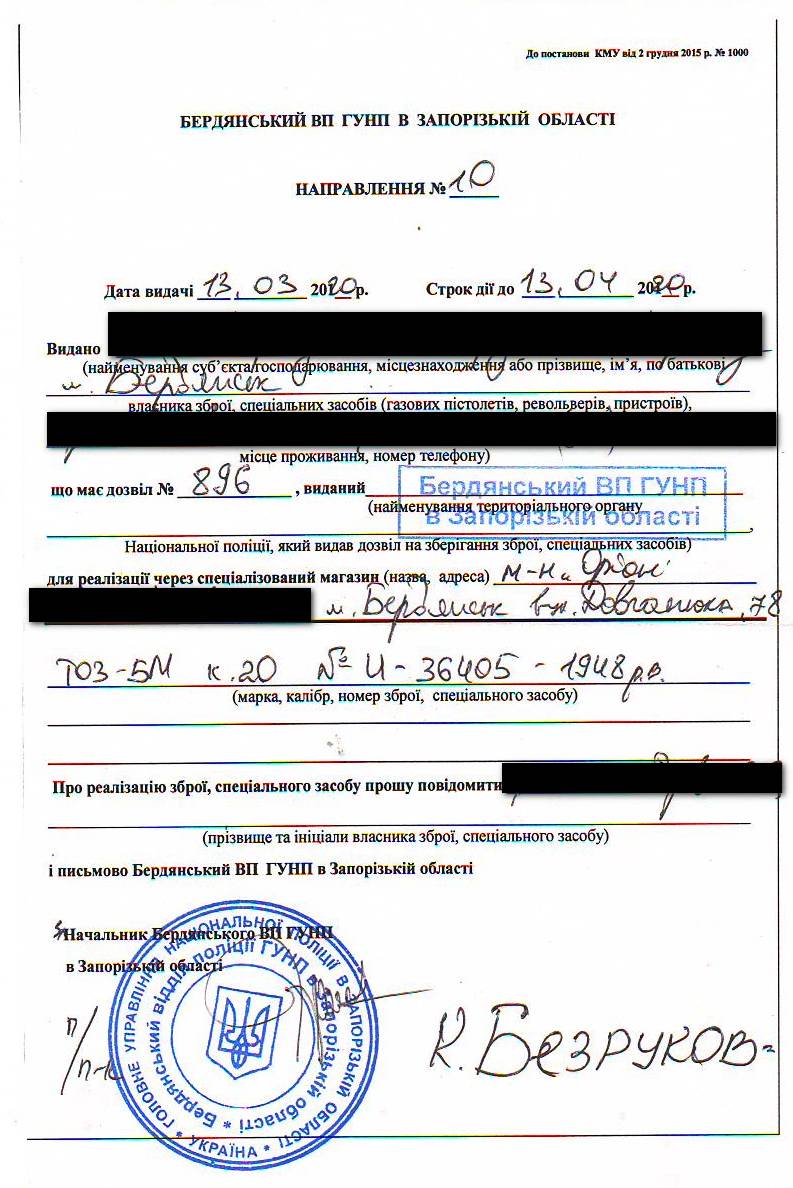 До постанови КМУ від 2 грудня 2015 р. № 1000
БЕРДЯНСЬКИЙ ВП ГУНП В ЗАПОРІЗЬКІЙ ОБЛАСТІ
НАПРАВЛЕННЯ № 10
Дата видачі 13, 03 2020р. Строк дії до 13, 04 2020р.
Видано
(найменування суб’єкта господарювання, місцезнаходження або прізвище, ім’я, по батькові
м. Бердянськ
власника зброї, спеціальних засобів (газових пістолетів, револьверів, пристроїв),
місце проживання, номер телефону)
що має дозвіл № 896, виданий Бердянський ВП ГУНП
(найменування територіального органу
в Запорізькій області,
Національної поліції, який видав дозвіл на зберігання зброї, спеціальних засобів)
для реалізації через спеціалізований магазин (назва, адреса) м-н Оріон
м. Бердянськ вул. Довганюка, 78
ТОЗ-БМ к.20 № И-36405 - 1948 р.в.
(марка, калібр, номер зброї, спеціального засобу)
Про реалізацію зброї, спеціального засобу прошу повідомити
(прізвище та ініціали власника зброї, спеціального засобу)
і письмово Бердянський ВП ГУНП в Запорізькій області
Начальник Бердянського ВП ГУНП
в Запорізькій області
п/п-к
К. Безруков
ГОЛОВНЕ УПРАВЛІННЯ НАЦІОНАЛЬНОЇ ПОЛІЦІЇ В ЗАПОРІЗЬКІЙ ОБЛАСТІ * УКРАЇНА *
Бердянський відділ поліції ГУНП в Запорізькій області *